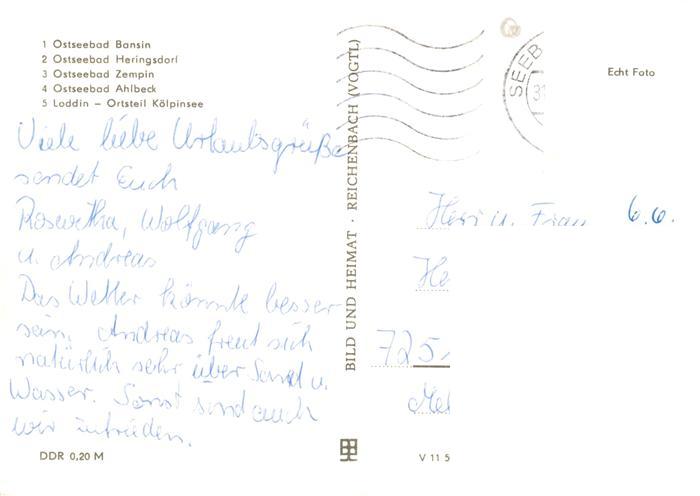 1 Ostseebad Bansin
2 Ostseebad Heringsdorf
3 Ostseebad Zempin
4 Ostseebad Ahlbeck
5 Loddin – Ortsteil Kölpinsee
Viele liebe Urlaubsgrüße
sendet Euch
Roswitha, Wolfgang
u. Andreas
Das Wetter könnte besser
sein. Andreas freut sich
natürlich sehr über Sand u.
Wasser. Sonst sind auch
wir zufrieden.
DDR 0,20 M
BILD UND HEIMAT · REICHENBACH (VOGTL)
V 11 5
SEEB
31
Echt Foto
Herr u. Frau
He
725